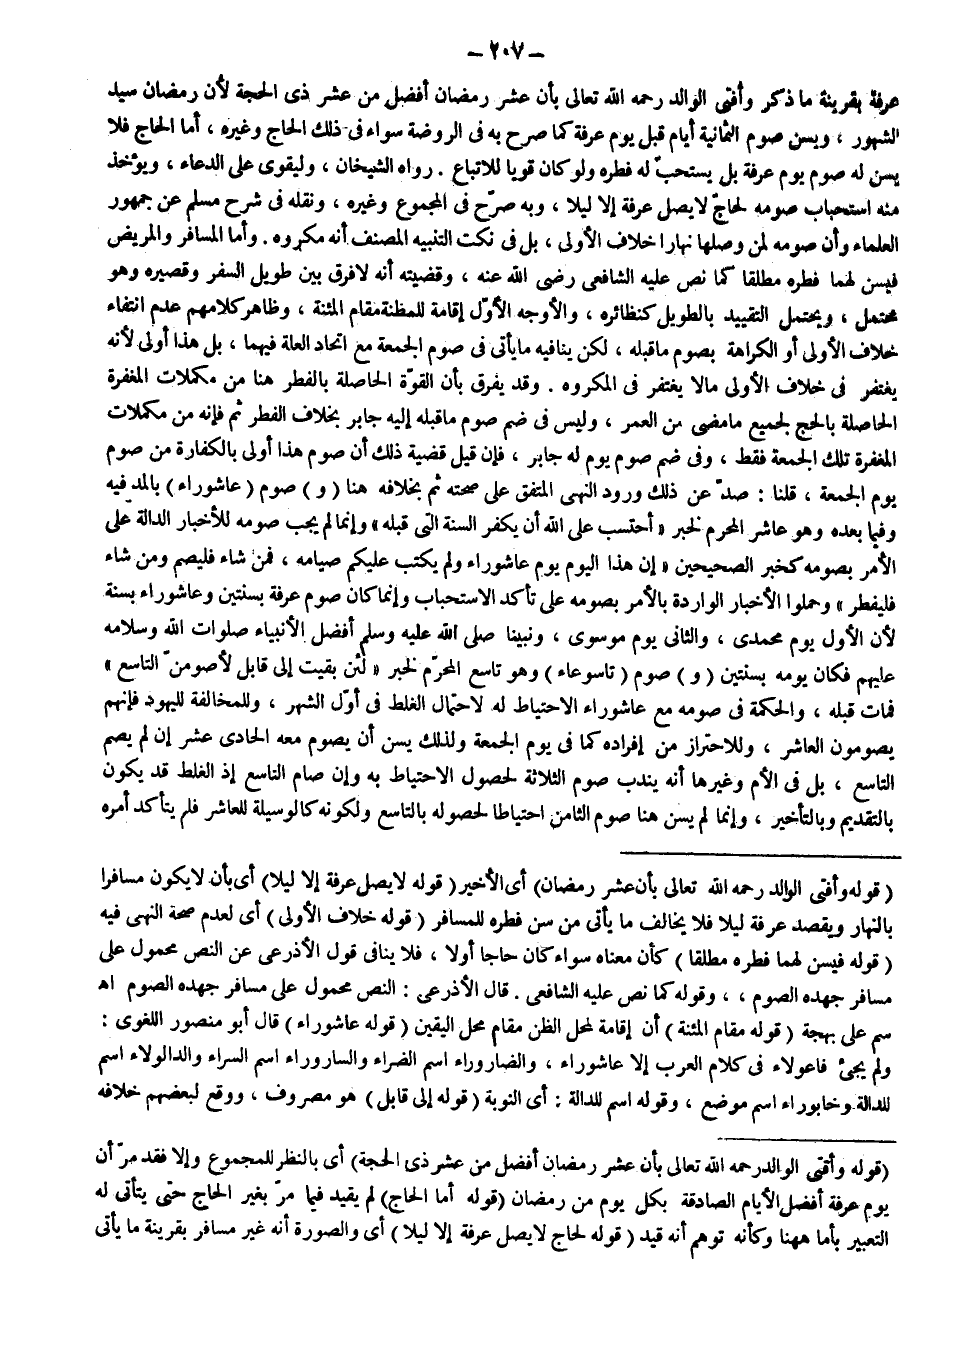 – ٢٠٧ –
عرفة بقرينة ما ذكر وأفتى الوالد رحمه الله تعالى بأن عشر رمضان أفضل من عشر ذى الحجة لأن رمضان سيد
الشهور ، ويسن صوم الثمانية أيام قبل يوم عرفة كما صرح به فى الروضة سواء فى ذلك الحاج وغيره ، أما الحاج فلا
يسن له صوم يوم عرفة بل يستحبّ له فطره ولو كان قويا للاتباع . رواه الشيخان ، وليقوى على الدعاء ، ويؤخذ
منه استحباب صومه لحاجّ لا يصل عرفة إلا ليلا ، وبه صرّح فى المجموع وغيره ، ونقله فى شرح مسلم عن جمهور
العلماء وأن صومه لمن وصلها نهارا خلاف الأولى ، بل فى نكت التنبيه المصنف أنه مكروه . وأما المسافر والمريض
فيسن لهما فطره مطلقا كما نص عليه الشافعى رضى الله عنه ، وقضيته أنه لافرق بين طويل السفر وقصيره وهو
محتمل ، ويحتمل التقييد بالطويل كنظائره ، والأوجه الأوّل إقامة للمظنة مقام المئنة ، وظاهر كلامهم عدم انتفاء
خلاف الأولى أو الكراهة بصوم ماقبله ، لكن ينافيه مايأتى فى صوم الجمعة مع اتحاد العلة فيهما ، بل هذا أولى لأنه
يغتفر فى خلاف الأولى مالا يغتفر فى المكروه . وقد يفرق بأن القوّة الحاصلة بالفطر هنا من مكملات المغفرة
الحاصلة بالحج لجميع مامضى من العمر ، وليس فى ضم صوم ماقبله إليه جابر بخلاف الفطر ثم فإنه من مكملات
المغفرة تلك الجمعة فقط ، وفى ضم صوم يوم له جابر ، فإن قيل قضية ذلك أن صوم هذا أولى بالكفارة من صوم
يوم الجمعة ، قلنا : صدّ عن ذلك ورود النهى المتفق على صحته ثم بخلافه هنا ( و ) صوم ( عاشوراء ) بالمد فيه
وفيما بعده وهو عاشر المحرم لخبر « أحتسب على الله أن يكفر السنة التى قبله » وإنما لم يجب صومه للأخبار الدالة على
الأمر بصومه كخبر الصحيحين « إن هذا اليوم يوم عاشوراء ولم يكتب عليكم صيامه ، فمن شاء فليصم ومن شاء
فليفطر » وحملوا الأخبار الواردة بالأمر بصومه على تأكد الاستحباب وإنما كان صوم عرفة بسنتين وعاشوراء بسنة
لأن الأول يوم محمدى ، والثانى يوم موسوى ، ونبينا صلى الله عليه وسلم أفضل الأنبياء صلوات الله وسلامه
عليهم فكان يومه بسنتين ( و ) صوم ( تاسوعاء ) وهو تاسع المحرّم لخبر « لئن بقيت إلى قابل لأصومنّ التاسع »
فمات قبله ، والحكمة فى صومه مع عاشوراء الاحتياط له لاحتمال الغلط فى أوّل الشهر ، وللمخالفة لليهود فإنهم
يصومون العاشر ، وللاحتراز من إفراده كما فى يوم الجمعة ولذلك يسن أن يصوم معه الحادى عشر إن لم يصم
التاسع ، بل فى الأم وغيرها أنه يندب صوم الثلاثة لحصول الاحتياط به وإن صام التاسع إذ الغلط قد يكون
بالتقديم وبالتأخير ، وإنما لم يسن هنا صوم الثامن احتياطا لحصوله بالتاسع ولكونه كالوسيلة للعاشر فلم يتأكد أمره
( قوله وأفتى الوالد رحمه الله تعالى بأن عشر رمضان ) أى الأخير ( قوله لا يصل عرفة إلا ليلا ) أى بأن لايكون مسافرا
بالنهار ويقصد عرفة ليلا فلا يخالف ما يأتى من سن فطره للمسافر ( قوله خلاف الأولى ) أى لعدم صحة النهى فيه
( قوله فيسن لهما فطره مطلقا ) كأن معناه سواء كان حاجا أولا ، فلا ينافى قول الأذرعى عن النص محمول على
مسافر جهده الصوم ، ، وقوله كما نص عليه الشافعى . قال الأذرعى : النص محمول على مسافر جهده الصوم اه
سم على بهجة ( قوله مقام المئنة ) أن إقامة لمحل الظن مقام محل اليقين ( قوله عاشوراء ) قال أبو منصور اللغوى :
ولم يجئ فاعولاء فى كلام العرب إلا عاشوراء ، والضاروراء اسم الضراء والساروراء اسم السراء والدالولاء اسم
للدالة وخابوراء اسم موضع ، وقوله اسم للدالة : أى النوبة ( قوله إلى قابل ) هو مصروف ، ووقع لبعضهم خلافه
( قوله وأفتى الوالد رحمه الله تعالى بأن عشر رمضان أفضل من عشر ذى الحجة ) أى بالنظر للمجموع وإلا فقد مرّ أن
يوم عرفة أفضل الأيام الصادقة بكل يوم من رمضان ( قوله أما الحاج ) لم يقيد فيما مرّ بغير الحاج حتى يتأتى له
التعبير بأما ههنا وكأنه توهم أنه قيد ( قوله لحاج لايصل عرفة إلا ليلا ) أى والصورة أنه غير مسافر بقرينة ما يأتى